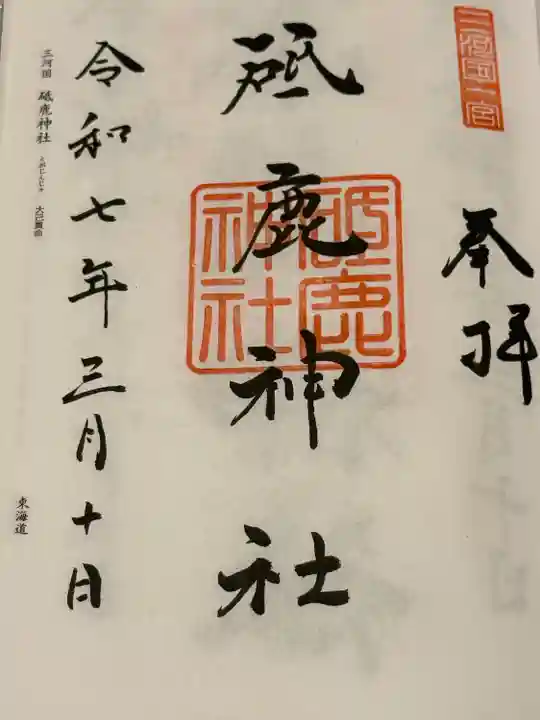 三河国一宮
奉拝
砥鹿神社
砥鹿神社
令和七年三月十日
三河国 砥鹿神社 とがじんじゃ 大己貴命
東海道